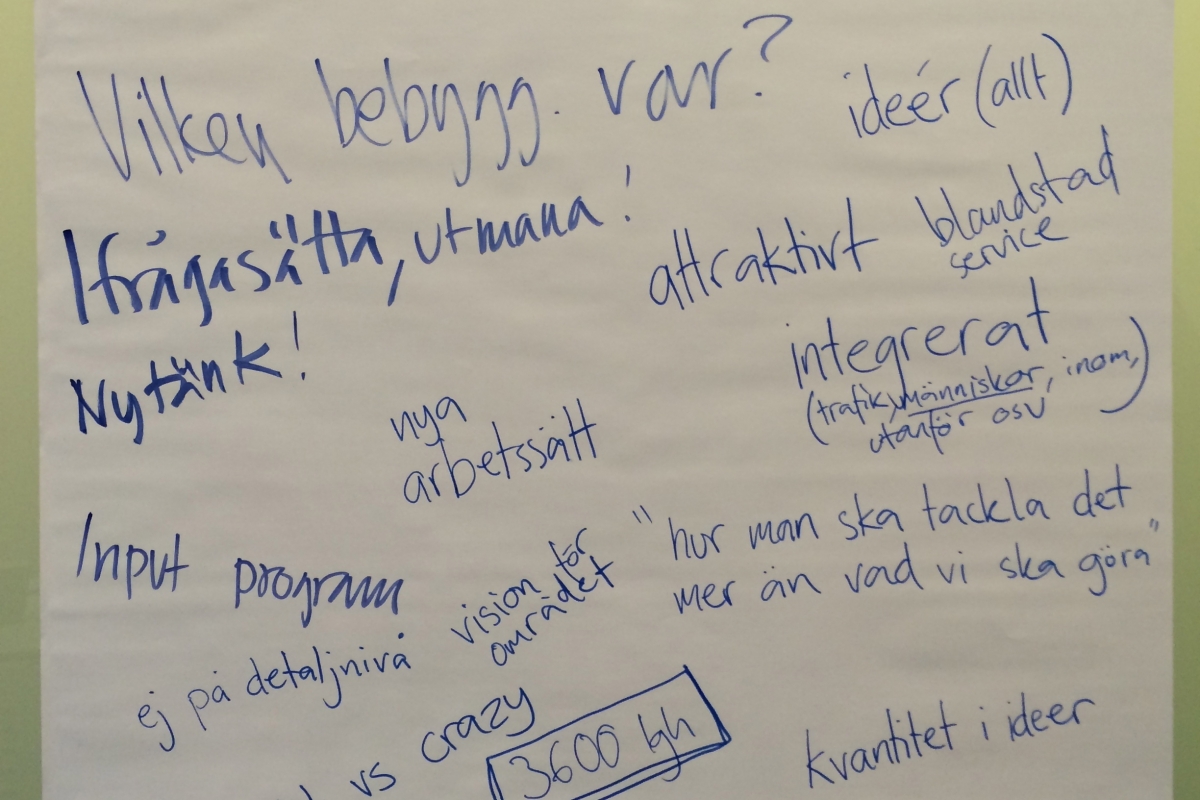 Vilken bebygg. var?
ideér (allt)
Ifrågasätta, utmana!
attraktivt
blandstad
service
Nytänk!
integrerat
(trafik, människor, inom,
utanför osv)
nya
arbetssätt
"hur man ska tackla det
mer än vad vi ska göra"
Input program
vision för
området
ej på detaljnivå
vs crazy
3600 lgh
kvantitet i ideer